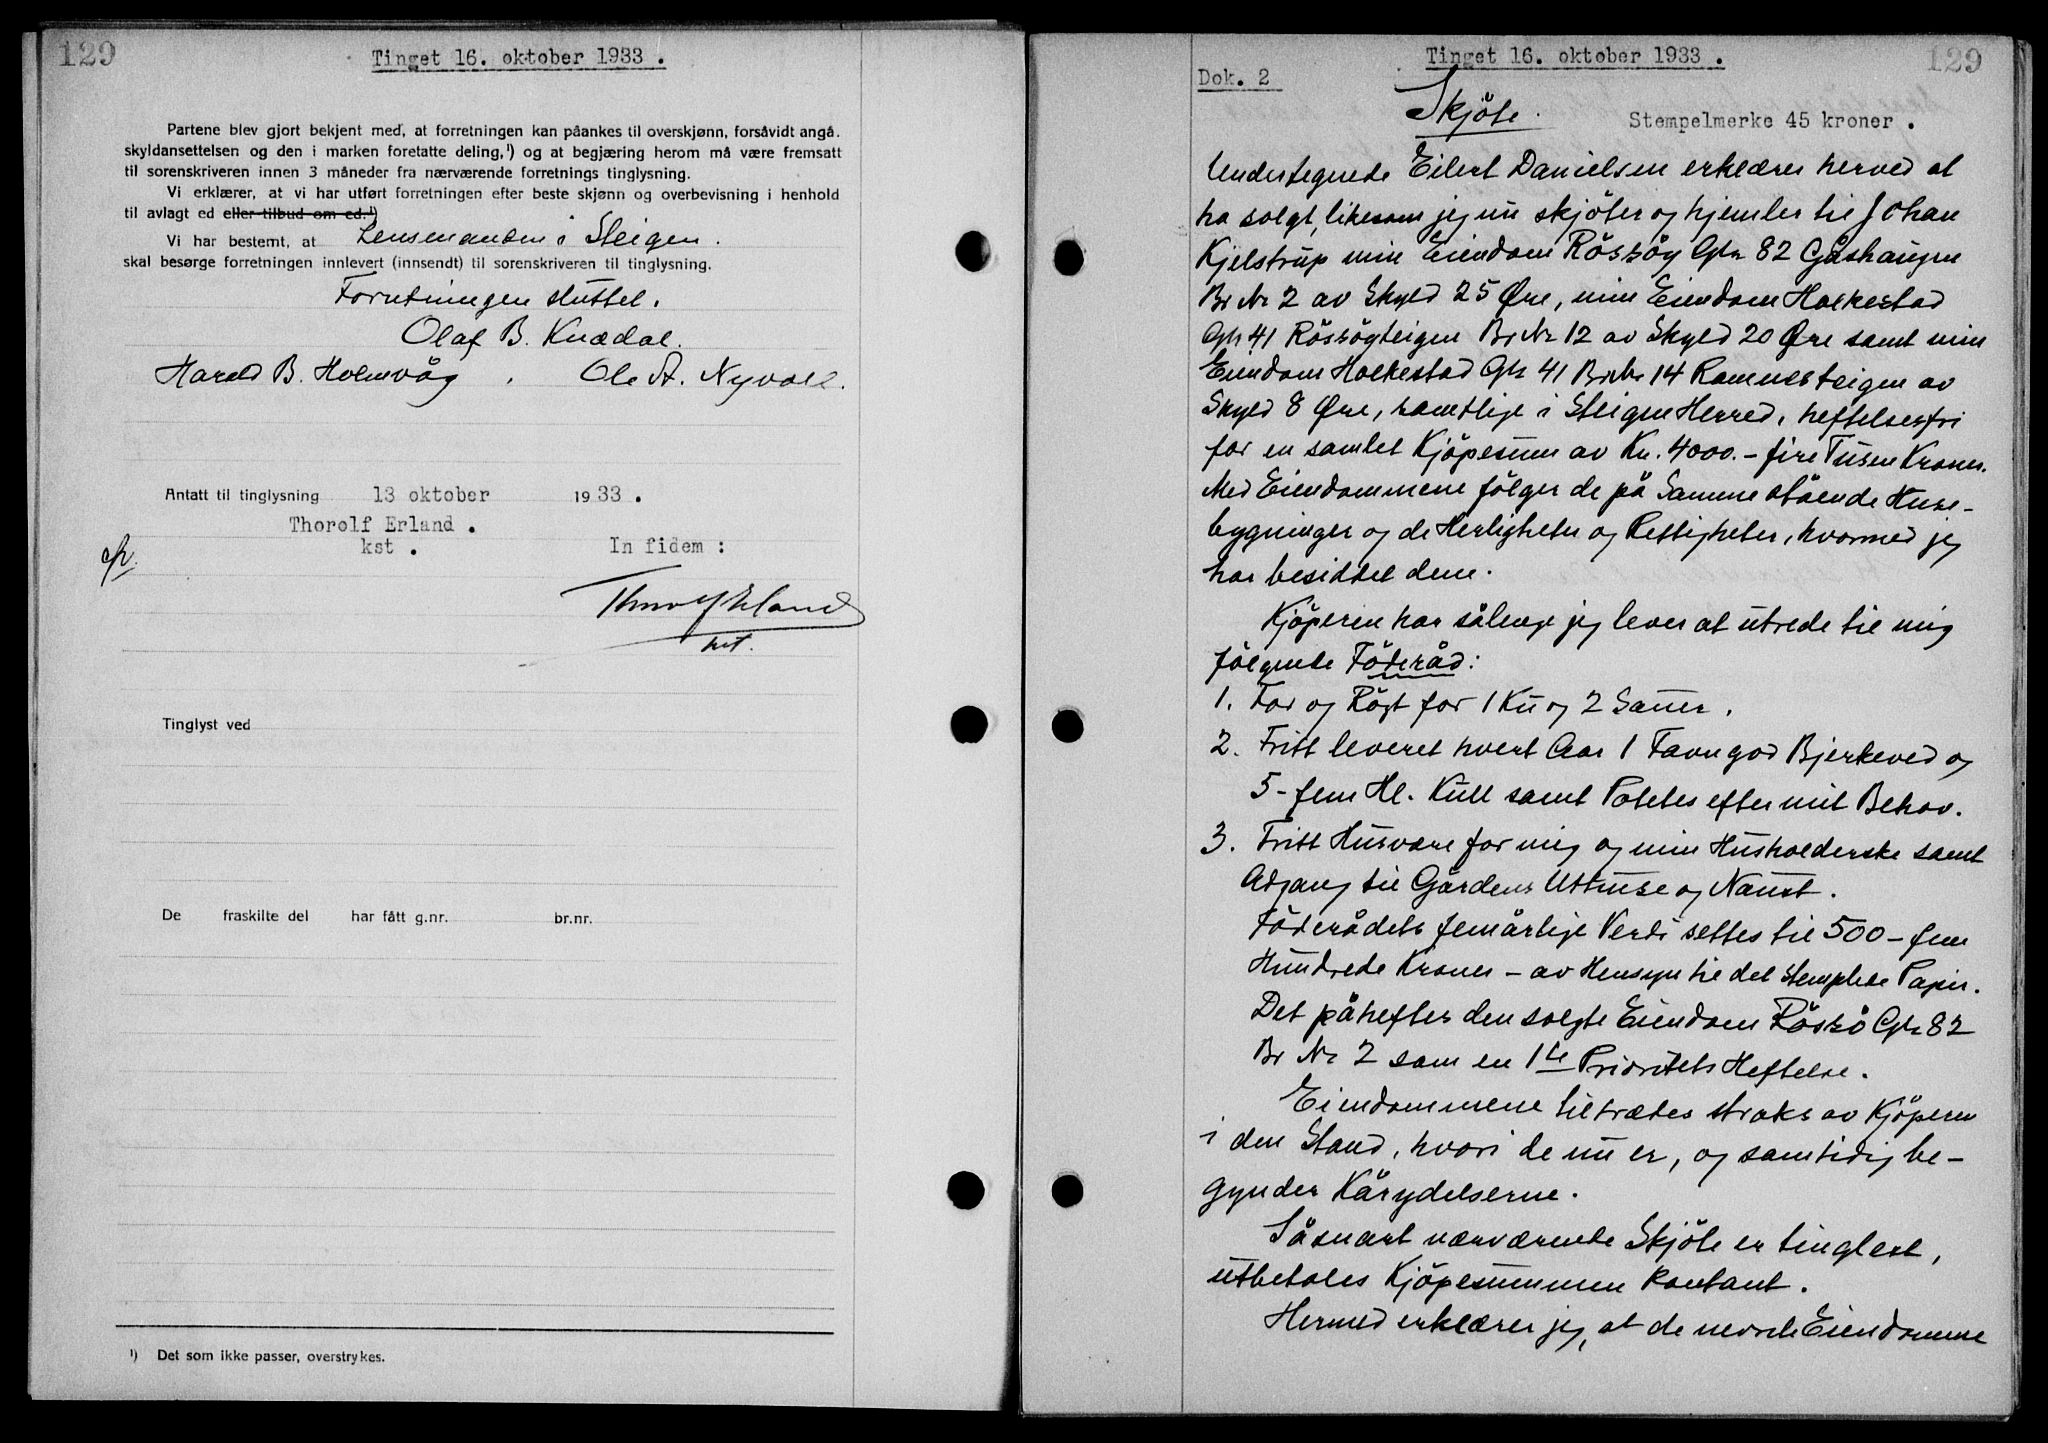 129
Tinget 16. oktober 1933 .
Partene blev gjort bekjent med, at forretningen kan påankes til overskjønn, forsåvidt angå.
skyldansettelsen og den i marken foretatte deling,¹) og at begjæring herom må være fremsatt
til sorenskriveren innen 3 måneder fra nærværende forretnings tinglysning.
Vi erklærer, at vi har utført forretningen efter beste skjønn og overbevisning i henhold
til avlagt ed eller tilbud om ed.¹)
Vi har bestemt, at Lensmanden i Steigen.
skal besørge forretningen innlevert (innsendt) til sorenskriveren til tinglysning.
Forretningen sluttet.
Olaf B. Knædal.
Harald B. Holmvåg . Ole A. Nyvoll.
Antatt til tinglysning 13 oktober 1933 .
Thorolf Erland .
kst . In fidem :
Thorolf Erland
kst.
Tinglyst ved
De fraskilte del har fått g.nr. br.nr.
¹) Det som ikke passer, overstrykes.
Tinget 16. oktober 1933 .
129
Dok. 2
Skjöte.
Stempelmerke 45 kroner .
Undertegnede Eilert Danielsen erklærer herved at
ha solgt, likesom jeg nu skjöter og hjemler til Johan
Kjelstrup min Eiendom Rössöy Gnr 82 Gåshaugen
Br Nr 2 av Skyld 25 Øre, min Eiendom Holkestad
Gnr 41 Rössöyteigen Br Nr 12 av Skyld 20 Øre samt min
Eiendom Holkestad Gnr 41 Br Nr 14 Ramnesteigen av
Skyld 8 Øre, samtlige i Steigen Herred, heftelsesfri
for en samlet Kjöpesum av Kr. 4000.- fire Tusen Kroner.
Med Eiendommene fölger de på Samme stående Huse-
bygninger og de Herligheter og Rettigheter, hvormed jeg
har besiddet dem.
Kjöperen har sålenge jeg lever at utrede til mig
fölgende Föderåd:
1. For og Rögt for 1 Ku og 2 Sauer.
2. Fritt leveret hvert Aar 1 Favn god Bjerkeved og
5 - fem Hl. Kull samt Potetes efter mit Behov.
3. Fritt Husvære for mig og min Husholderske samt
Adgang til Gårdens Uthuse og Naust.
Föderådets femårlige Verdi settes til 500 - fem
Hundrede Kroner - av Hensyn til det stemplede Papir.
Det påhefter den solgte Eiendom Rössö Gnr 82
Br Nr 2 som en 1ste Prioritets Heftelse.
Eiendommene tiltrædes straks av Kjöperen
i den Stand, hvori de nu er, og samtidig be-
gynder Kårydelserne.
Såsnart nærværende Skjöte er tinglest,
utbetales Kjöpesummen kontant.
Hermed erklærer jeg, at de nevnte Eiendomme